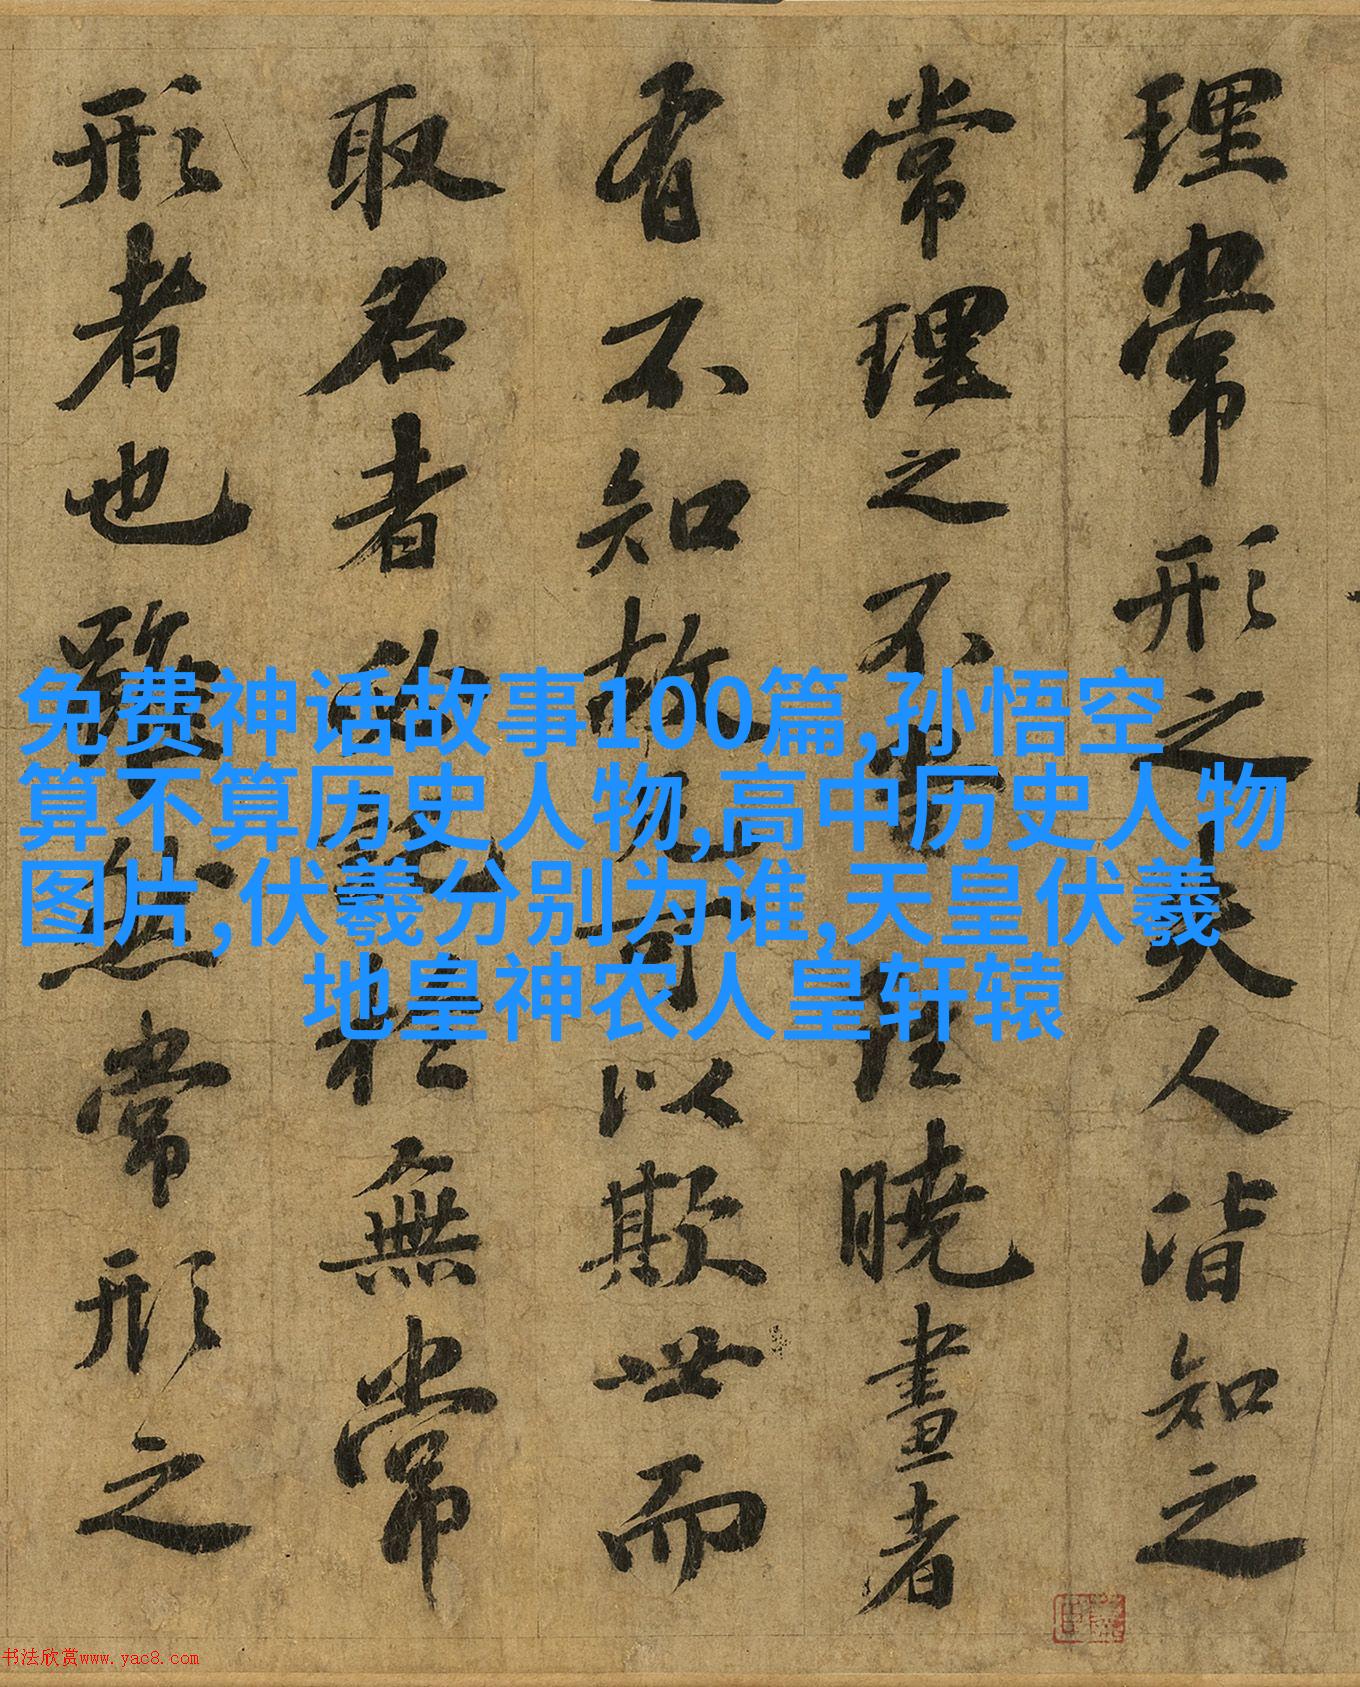 理常形之失人皆知之
常理之不當雖曉畫者
有不知故凡可以欺世而
取名者必託於無常
形者也雖然常形之
免费神话故事100篇,孙悟空
算不算历史人物,高中历史人物
图片,伏羲分别为谁,天皇伏羲
地皇神农人皇轩辕
书法欣赏www.yac8.com